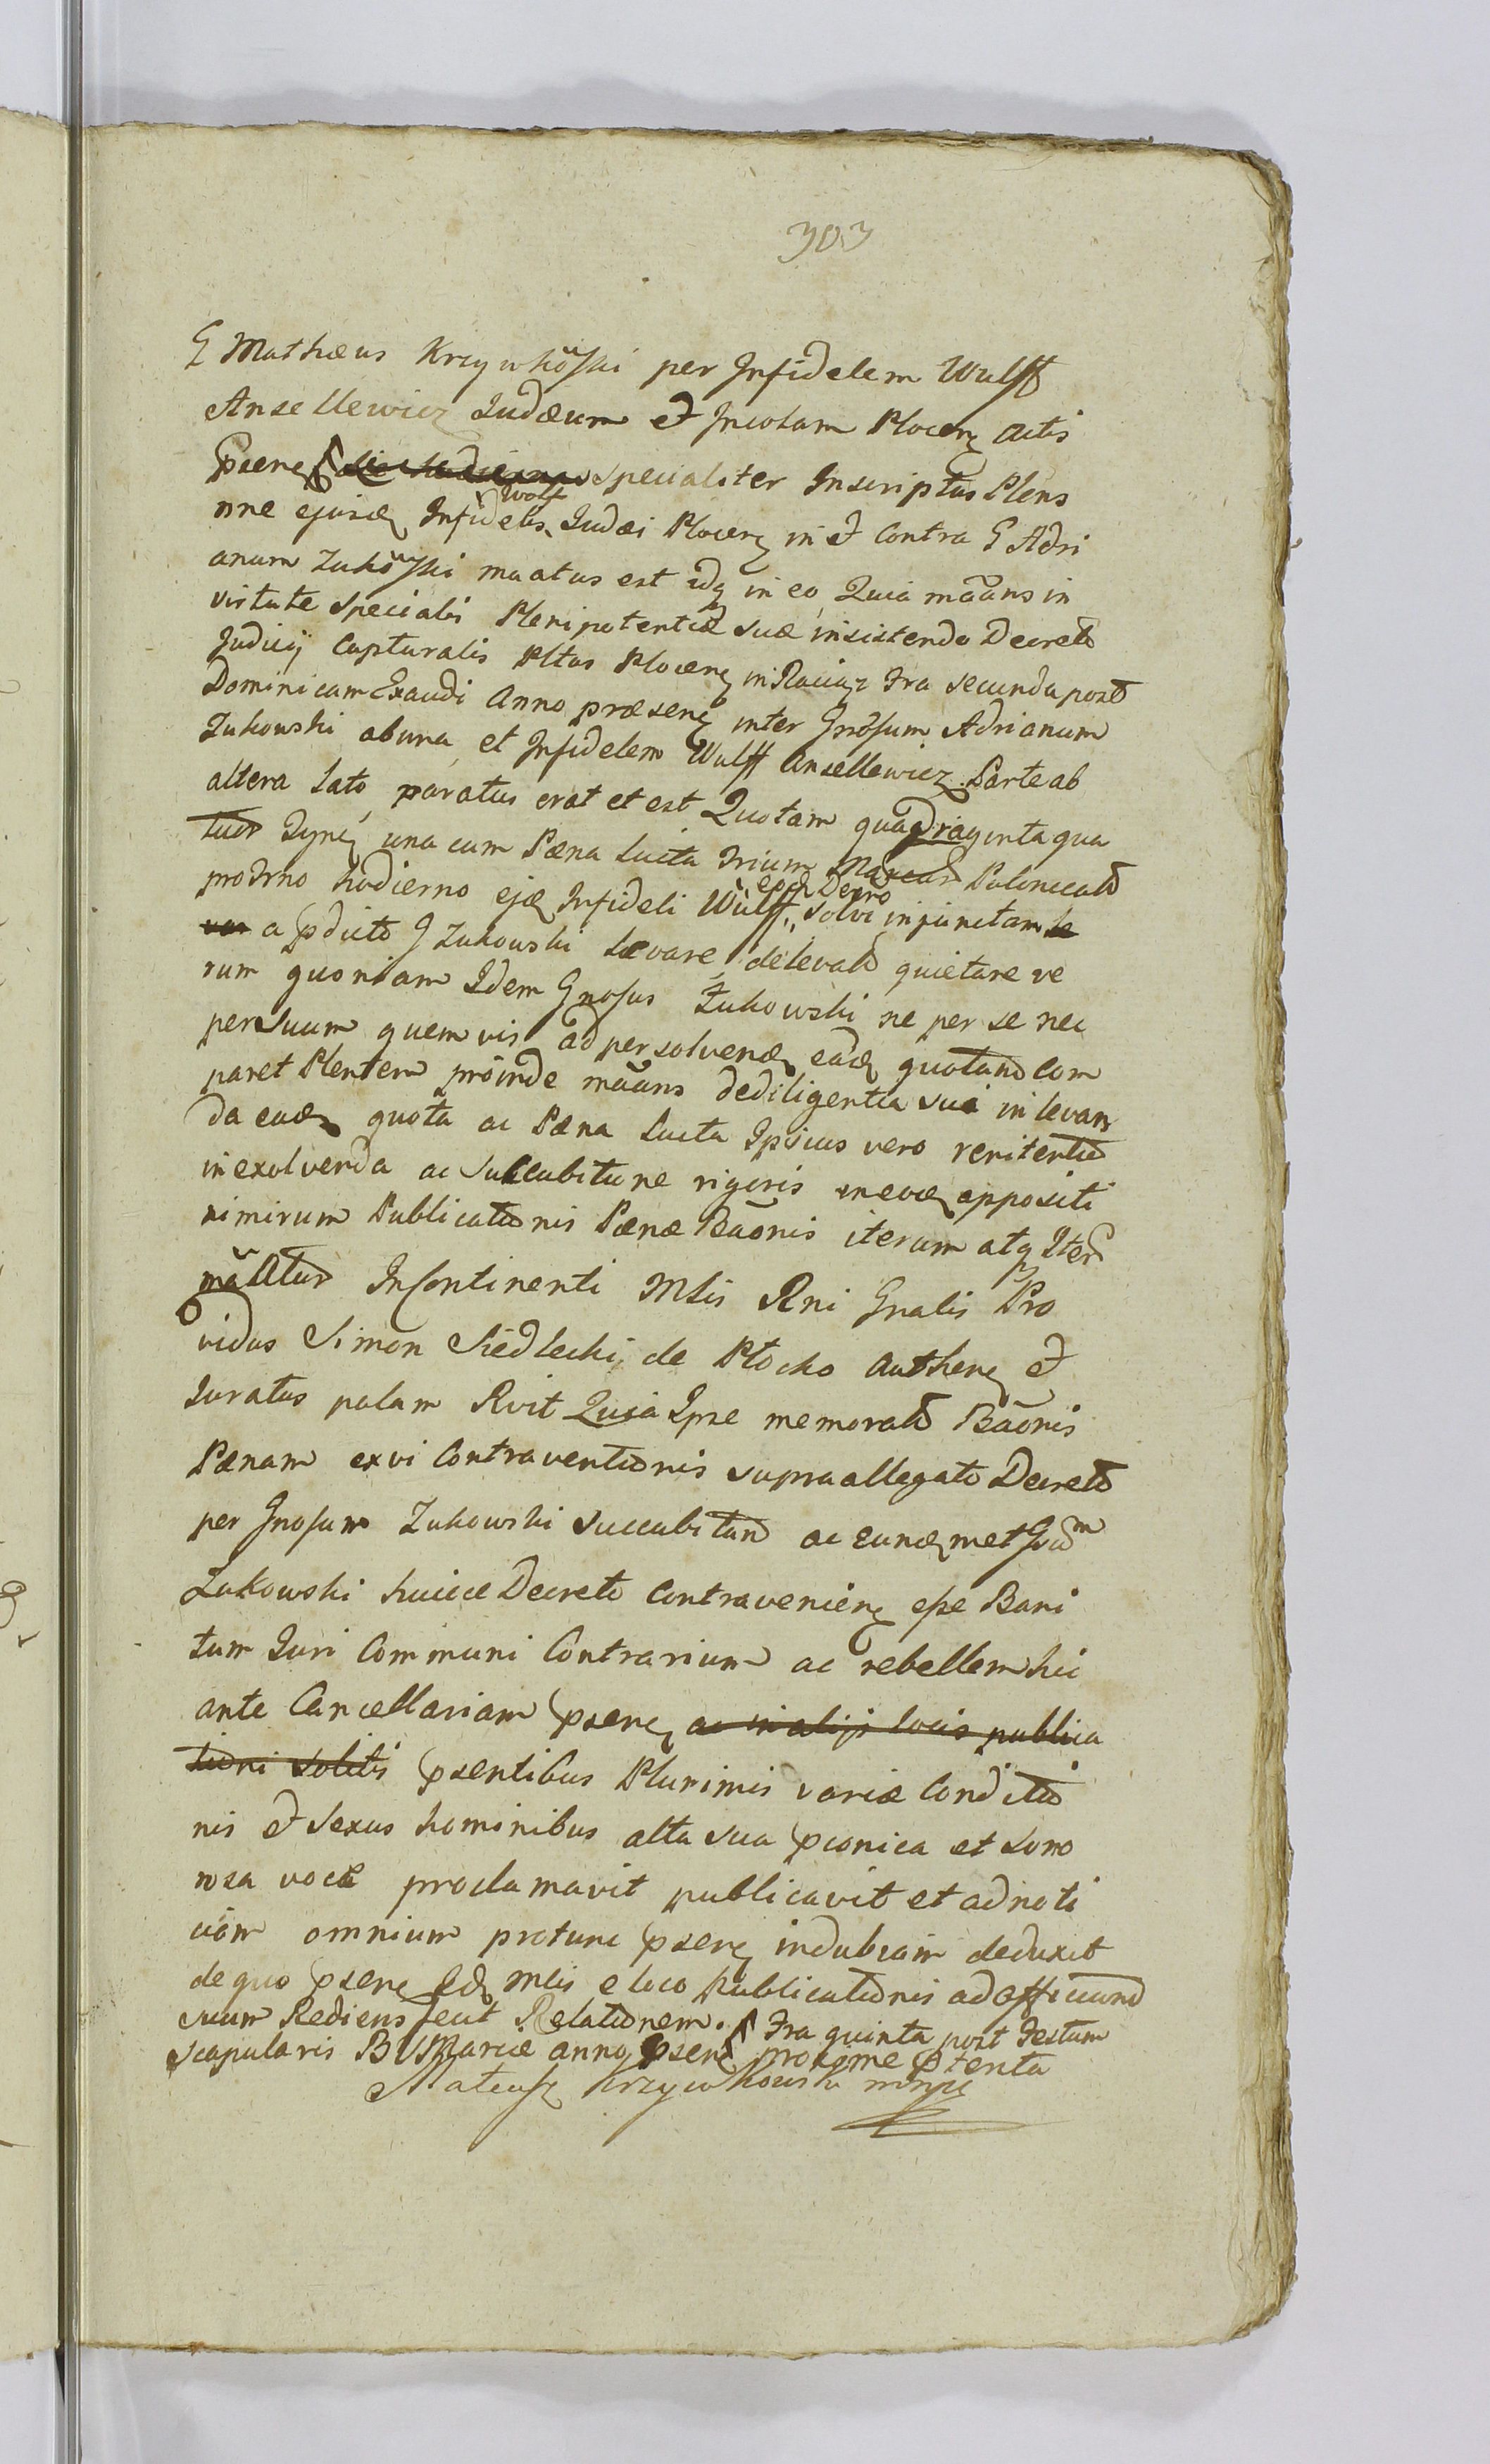 303
G Mathæus Krzywkõski per Infidelem Wulff
Ansellewicz Judæum et Incolam Plocen Actis
psen specialiter Inscriptus Plens
nne ejusd Infidelis Wolf Judæi Plocen in et contra G Adri
anum Zukõwski maatus est idq in eo Quia mãans in
virtute specialis Plenipotentiæ suæ insistendo Decreto
Judicij Capturalis Pltus Plocen in Raciąz Fra secunda post
Dominicam Exaudi Anno præsen inter Gnrosum Adrianum
Zukowski abuna et Infidelem Wulff Ansellewicz Parte ab
altera Lato paratus erat et est Quotam quadraginta qua
tuor Tynf una cum Pæna Lucta trium Marcar Polonicali
pro Trno hodierno ejd Infideli Wulff eod Decro solvi injunctam
a pdicto G Zukowski Lævare delevato quietare ve
rum quoniam Idem Gnosus Zukowski ne per se nec
per suum quemvis ad persolvend ead quotam com
paret Plentem proinde mãans de diligentia sua in levan
da ead quota ac Pæna Lucta Ipsius vero renitentia
in exolvenda ac succubitione rigoris in eod appositi
nimirum Publicationis Pænæ Bãonis iterum atq Iter
mãAtur Incontinenti Mlis Rni Gnalis Pro
vidus Simon Siedlecki de Płocko Authen et
Juratus palam Rvit Quia Ipse memorato Bãonis
Pænam ex vi Contraventionis supra allegato Decreto
per Gnosum Zukowski succubitam ac eundmet Grum
Zukowski huicce Decreto Contravenien esse Bani
tum Juri Communi Contrarium ac rebellem hic
ante Cancellariam psen ac in alijs locis publica
tioni solitis psentibus Plurimis variæ Conditio
nis et sexus hominibus alta sua pconica et sono
rosa voce proclamavit publicavit et ad noti
ciam omnium protunc psen indubiam deduxit
de quo psen Ed Mlis e loco Publicationis ad officium
suum Rediens fecit Relationem. Fra quinta post Festum
Scapularis B V Mariæ anno psen proxime ptenta
Mateusz Krzywkowski mppr